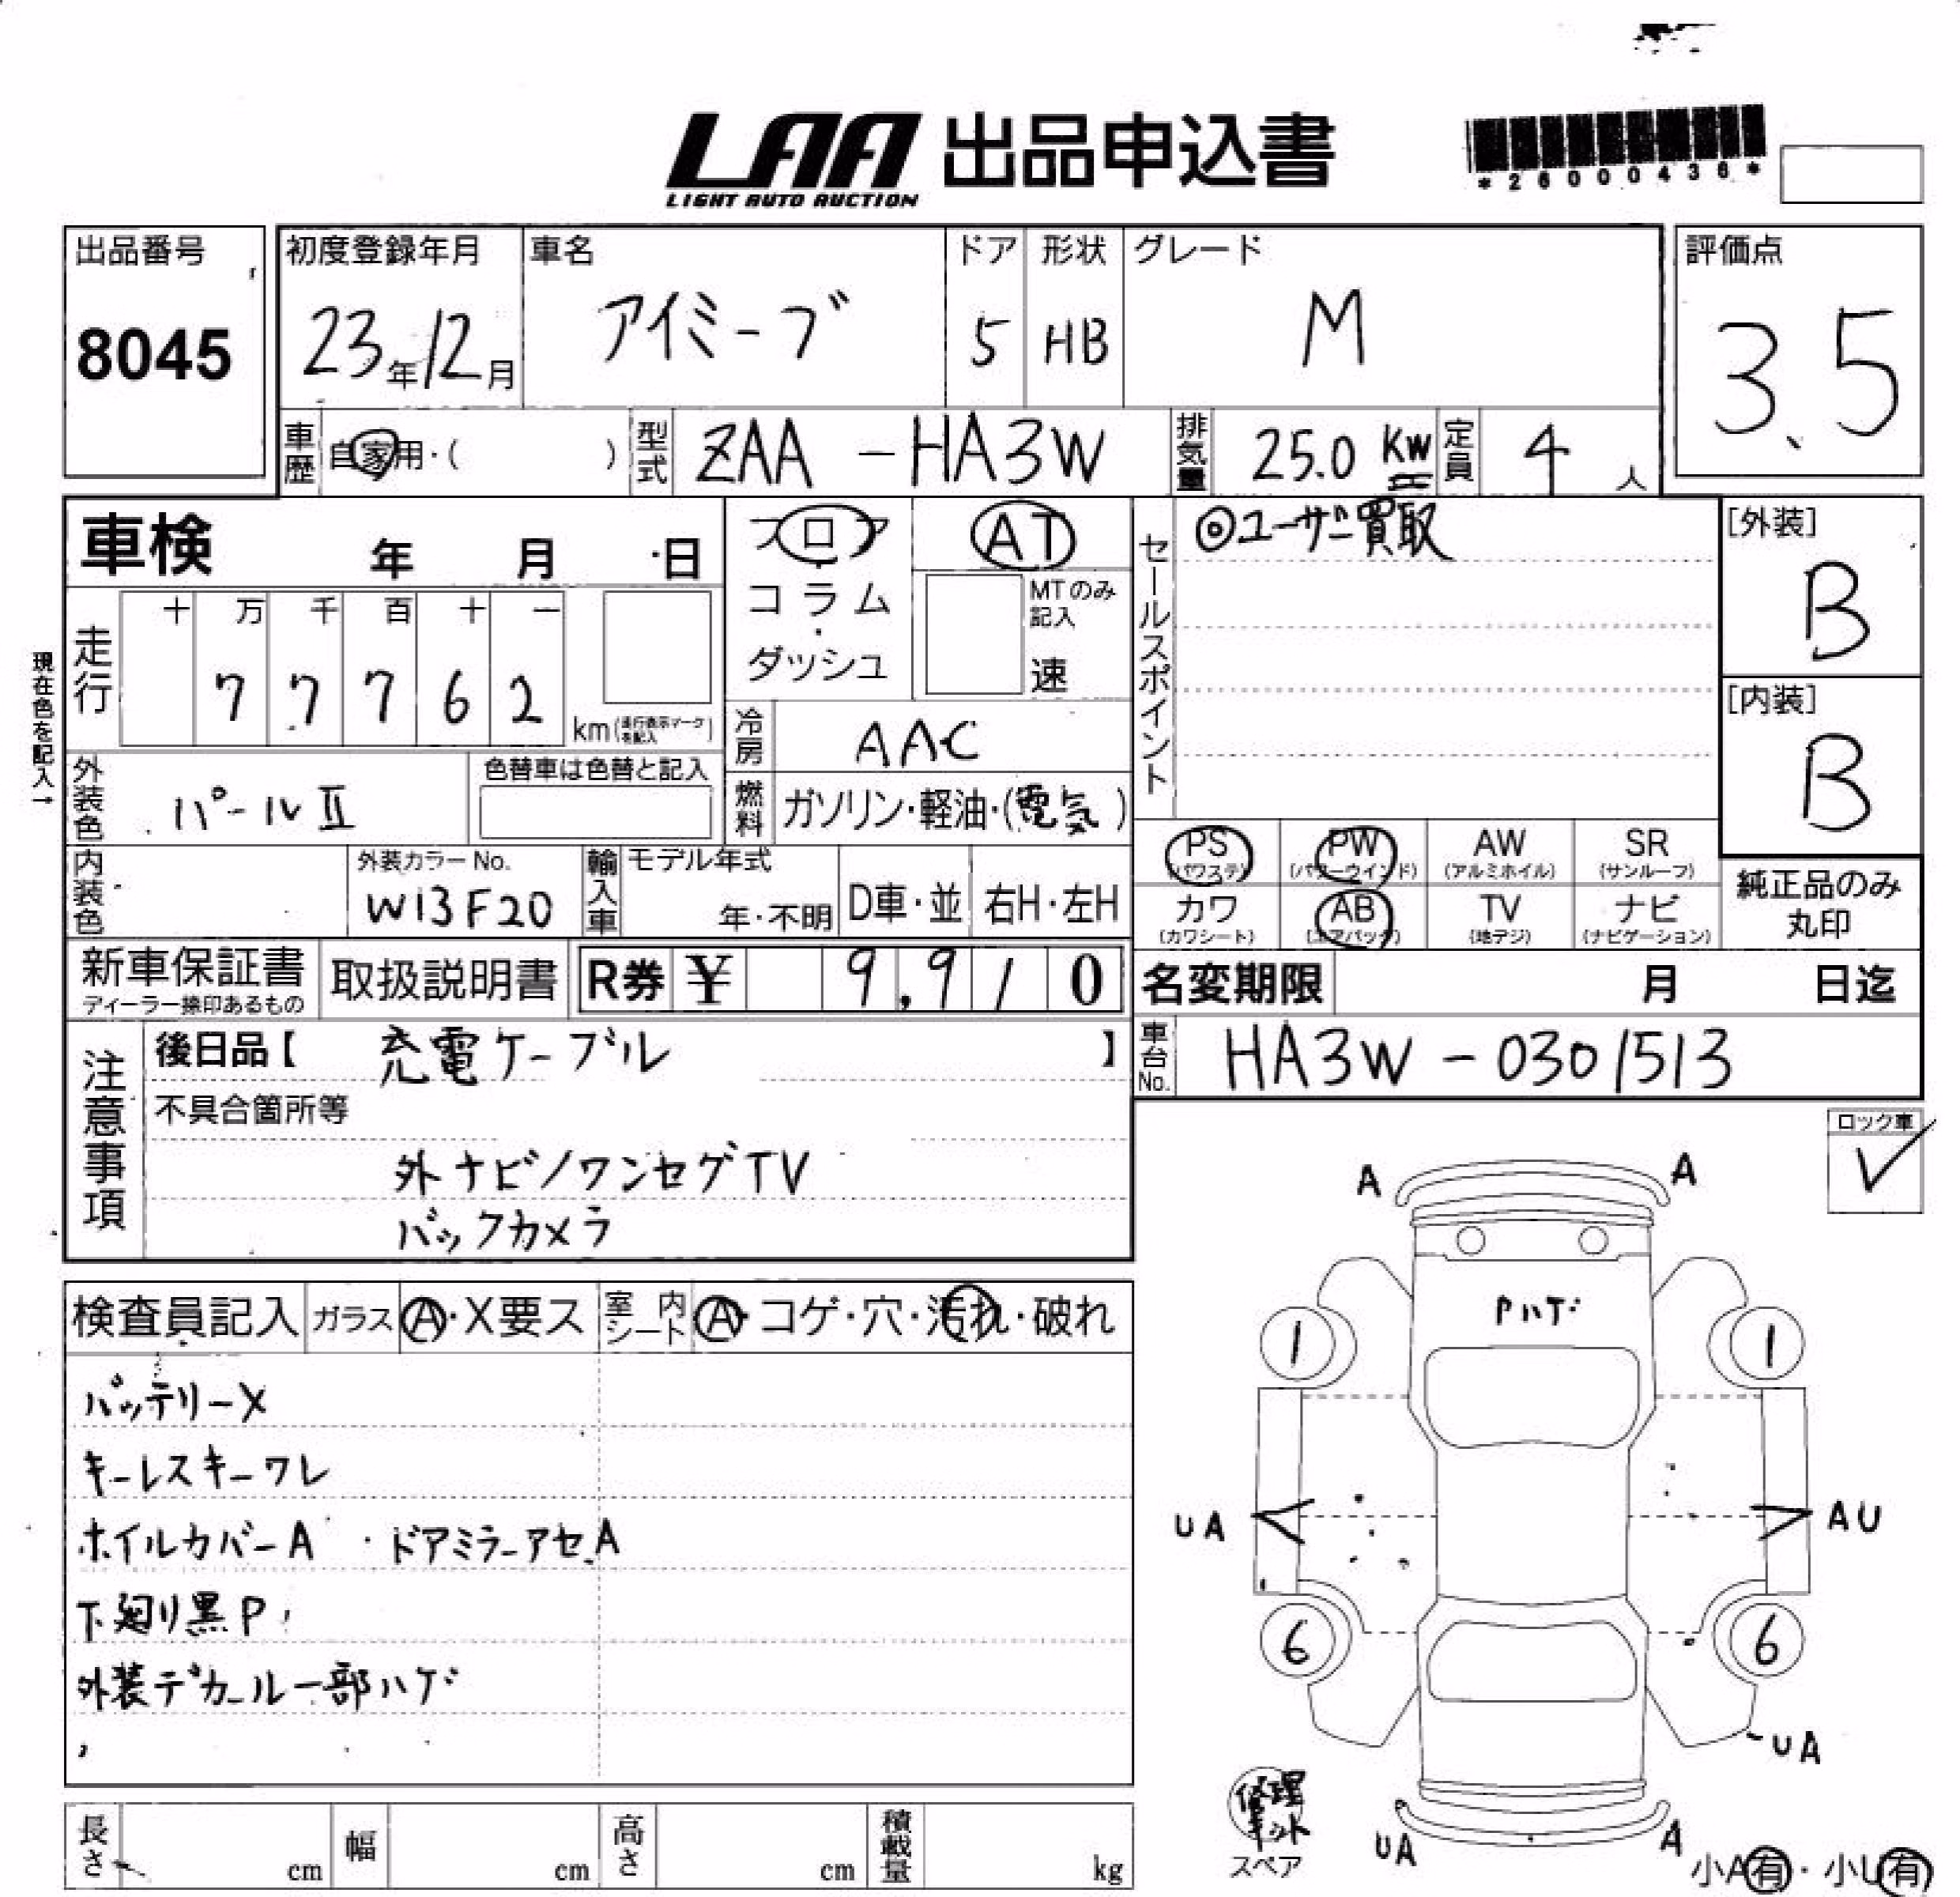 LAA 出品申込書
LIGHT AUTO AUCTION
*26000436*
出品番号
8045
初度登録年月
23年12月
車名
アイミーブ
ドア
5
形状
HB
グレード
M
評価点
3.5
車歴
自家用・( )
型式
ZAA - HA3W
排気量
25.0 KW
定員
4人
車検 年 月 日
フロア
コラム
・
ダッシュ
AT
MTのみ
記入
速
セールスポイント
◎ユーザー買取
[外装]
B
[内装]
B
現在色を記入→
走行
十 万 千 百 十 一
7 7 7 6 2
km(走行表示マークを記入)
冷房
AAC
外装色
パールⅡ
色替車は色替と記入
燃料
ガソリン・軽油・(電気)
内装色
外装カラーNo.
W13F20
輸入車
モデル年式
年・不明
D車・並
右H・左H
PS
(パワステ)
PW
(パワーウインド)
AW
(アルミホイル)
SR
(サンルーフ)
カワ
(カワシート)
AB
(エアバッグ)
TV
(地デジ)
ナビ
(ナビゲーション)
純正品のみ
丸印
新車保証書
ディーラー捺印あるもの
取扱説明書
R券 ¥ 9,910
名変期限 月 日迄
注意事項
後日品【 充電ケーブル 】
車台No.
HA3W - 0301513
不具合箇所等
外ナビ/ワンセグTV
バックカメラ
ロック車
✓
検査員記入
ガラス
A・X要ス
室内シート
A・コゲ・穴・汚れ・破れ
バッテリーX
キーレスキーワレ
ホイルカバーA ・ドアミラーアセA
下廻り黒P
外装デカール一部ハゲ
A A
Pハゲ
1 1
UA AU
6 6
UA
UA A
修理キット
スペア
小A有・小U有
長さ cm
幅 cm
高さ cm
積載量 kg